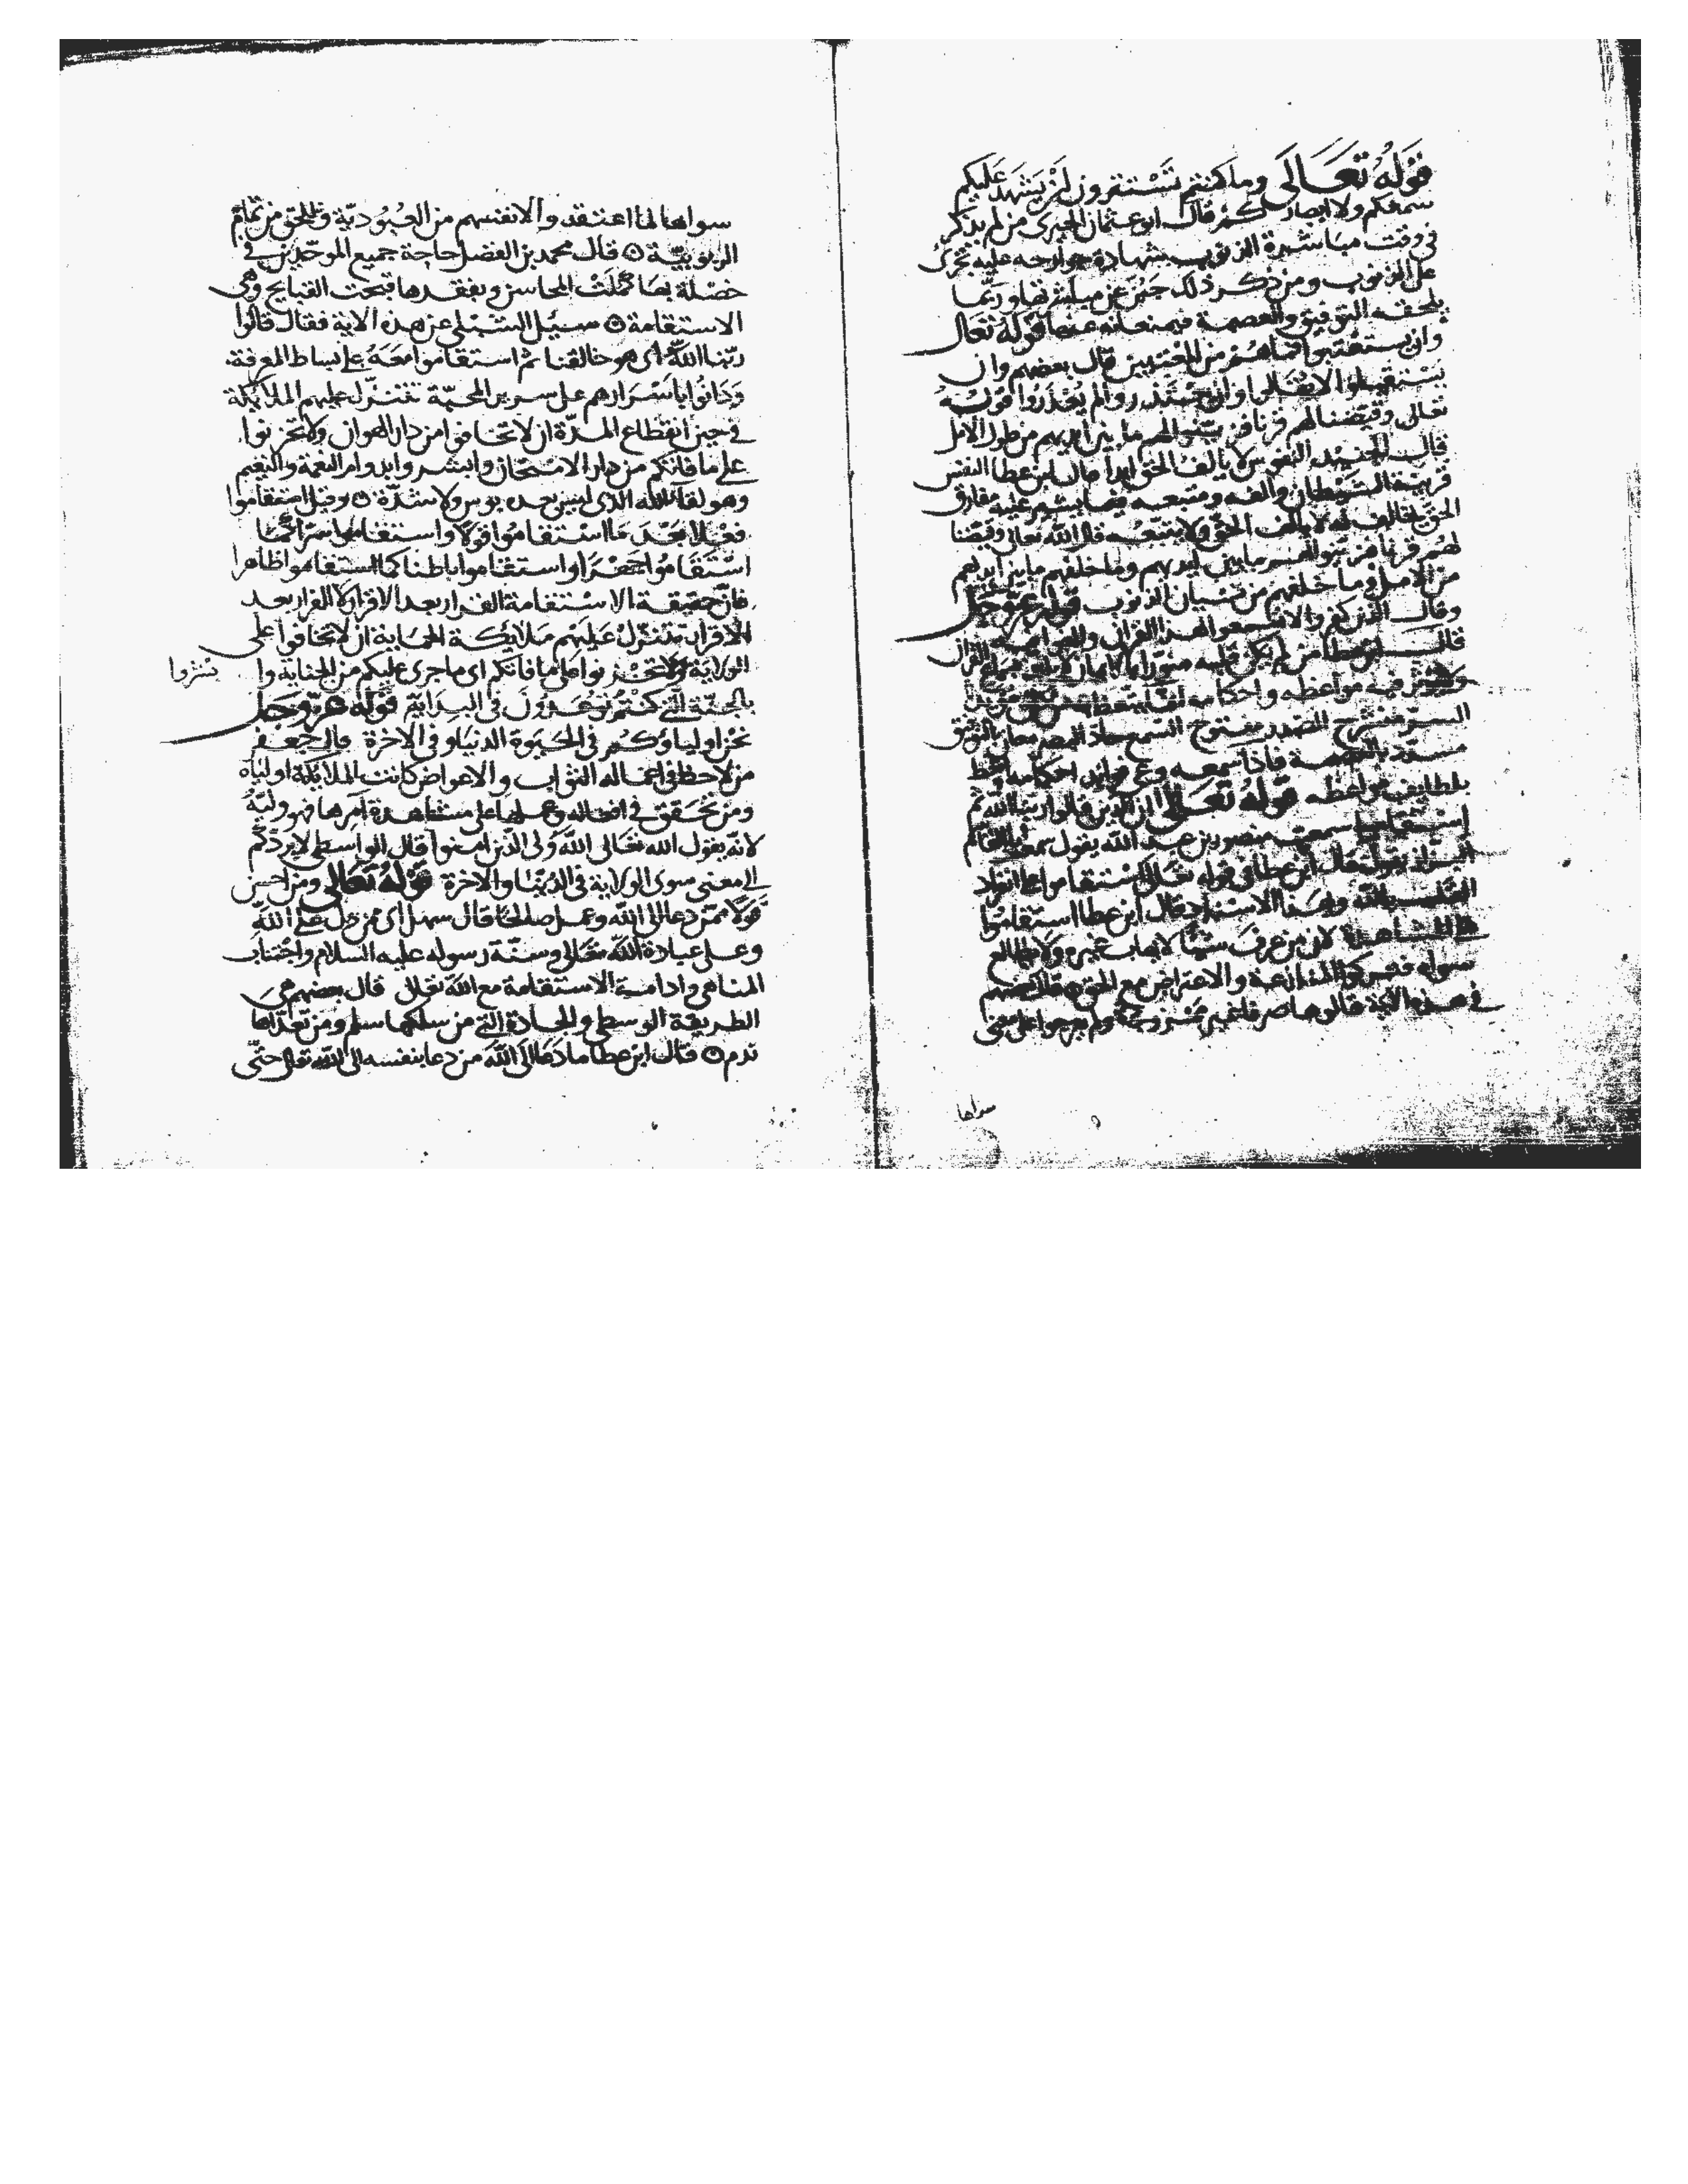 قوله تعالى وما كنتم تستترون ان يشهد عليكم
سمعكم ولا ابصاركم قال ابو عثمان الحيري من لم يذكر
في وقت مباشرة الذنوب شهادة جوارحه عليه تجرى
على الذنوب ومن ذكر ذلك جبن عن مباشرتها وربّما
يلحقه التوفيق والعصمة فيمنعانه عنها قوله تعالى
وان يستعتبوا فما هم من المعتبين قال بعضهم وان
يستقيلوا لا يقالوا وان يعتذروا لم يعذروا قوله
تعالى وقيضنا لهم قرنا فزيّنوا لهم ما بين ايديهم من طول الامل
قال الجنيد النفوس لا يالف الحق ابدا قال ابن عطا النفس
قرينة الشيطان والفه ومتبعه فيما يشير عليه مفارق
الحق مخالف له لا يالف الحق ولا يتبعه قال الله تعالى وقيضنا
لهم قرنا فزينوا لهم ما بين ايديهم وما خلفهم ما بين ايديهم
من الامل وما خلفهم من نسيان الذنوب قوله عز وجل
وقال الذين كفروا لا تسمعوا لهذا القران والغوا فيه
قال ابن عطا من لم يكن قلبه منورا بالايمان القران
مواعظه واحكامه
السر منشرح الصدر مفتوح السمع بالتوفيق
فاذا سمعه وعى فوائد احكامه
بلطايف مواعظه قوله تعالى ان الذين قالوا ربنا الله ثم
استقاموا سمعت منصور بن عبد الله يقول سمعت ابا القاسم
البزاز يقول قال ابن عطا في قوله تعالى استقاموا على انفراد
القلب بالله وبهذا الاسناد قال ابن عطا استقاموا
لان من عرف شيا لا يهاب غيره ولا يطالع
سواه فتركوا المنازعة والاعتراض مع الحق قال بعضهم
في هذه الاية قالوها صرفا غير ممزوجة ولم يعرجوا على شى
سواها
سواها لما اعتقدوا لانفسهم من العبودية وللحق من تمام
الربوبيّة ۞ قال محمد بن الفضل حاجة جميع الموحّدين في
خصلة بها كملت المحاسن وبفقدها قبحت القبايح وهى
الاستقامة ۞ سيل الشبلي عن هذه الاية فقال قالوا
ربّنا الله اى هو خالقنا ثم استقاموا معه على بساط المعرفة
ودانوا باسرارهم على سرير المحبّة تتنزّل عليهم الملائكة
في حين انقطاع المدّة ان لا تخافوا من دار الهوان ولا تحزنوا
على ما فاتكم من دار الامتحان وابشروا بدوام النعمة والنعيم
وهو لقاء الله الذى ليس بعده بوس ولا شدّة ۞ وقيل استقاموا
فعلا بعد ما استقاموا قولا واستقاموا سرّا كما
استقاموا جهرا واستقاموا باطنا كما استقاموا ظاهرا
فانّ حقيقة الاستقامة القرار بعد الاقرار لا الفرار بعد
الاقرار تتنزّل عليهم ملايكة المهابة ان لا تخافوا على
الولاية ولا تحزنوا على ما فاتكم اى ما جرى عليكم من الجناية وا بشروا
بالجنّة التي كنتم توعدون في البداية قوله عزّ وجل
نحن اولياوكم في الحيوة الدنيا وفي الاخرة قال جعفر
من لاحظ في اعماله الثواب والاعواض كانت الملائكة اولياه
ومن تحقق في افعاله وعملها على مشاهدة آمرها فهو وليّه
لانّه يقول الله تعالى الله ولى الذين امنوا قال الواسطى لا يردكم
الى معنى سوى الولاية في الدنيا والاخرة قوله تعالى ومن احسن
قولا ممّن دعا الى الله وعمل صالحا قال سهل اى ممن دل على الله
وعلى عبادة الله تعالى وسنّة رسوله عليه السلام واجتناب
المناهى وادامة الاستقامة مع الله تعالى قال بعضهم هى
الطريقة الوسطى والجادة التي من سلكها سلم ومن تعدّاها
ندم ۞ قال ابن عطا ما دعا الى الله من دعا بنفسه الى الله تعالى حتّى